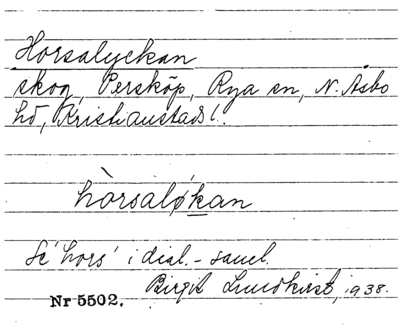 Horsalyckan
skog, Persköp, Rya sn, N. Åsbo
hd, Kristianstads l.
hòrsaløkan
Se 'hors' i dial.-saml.
Birgit Lundkvist, 1938.
Nr 5502.